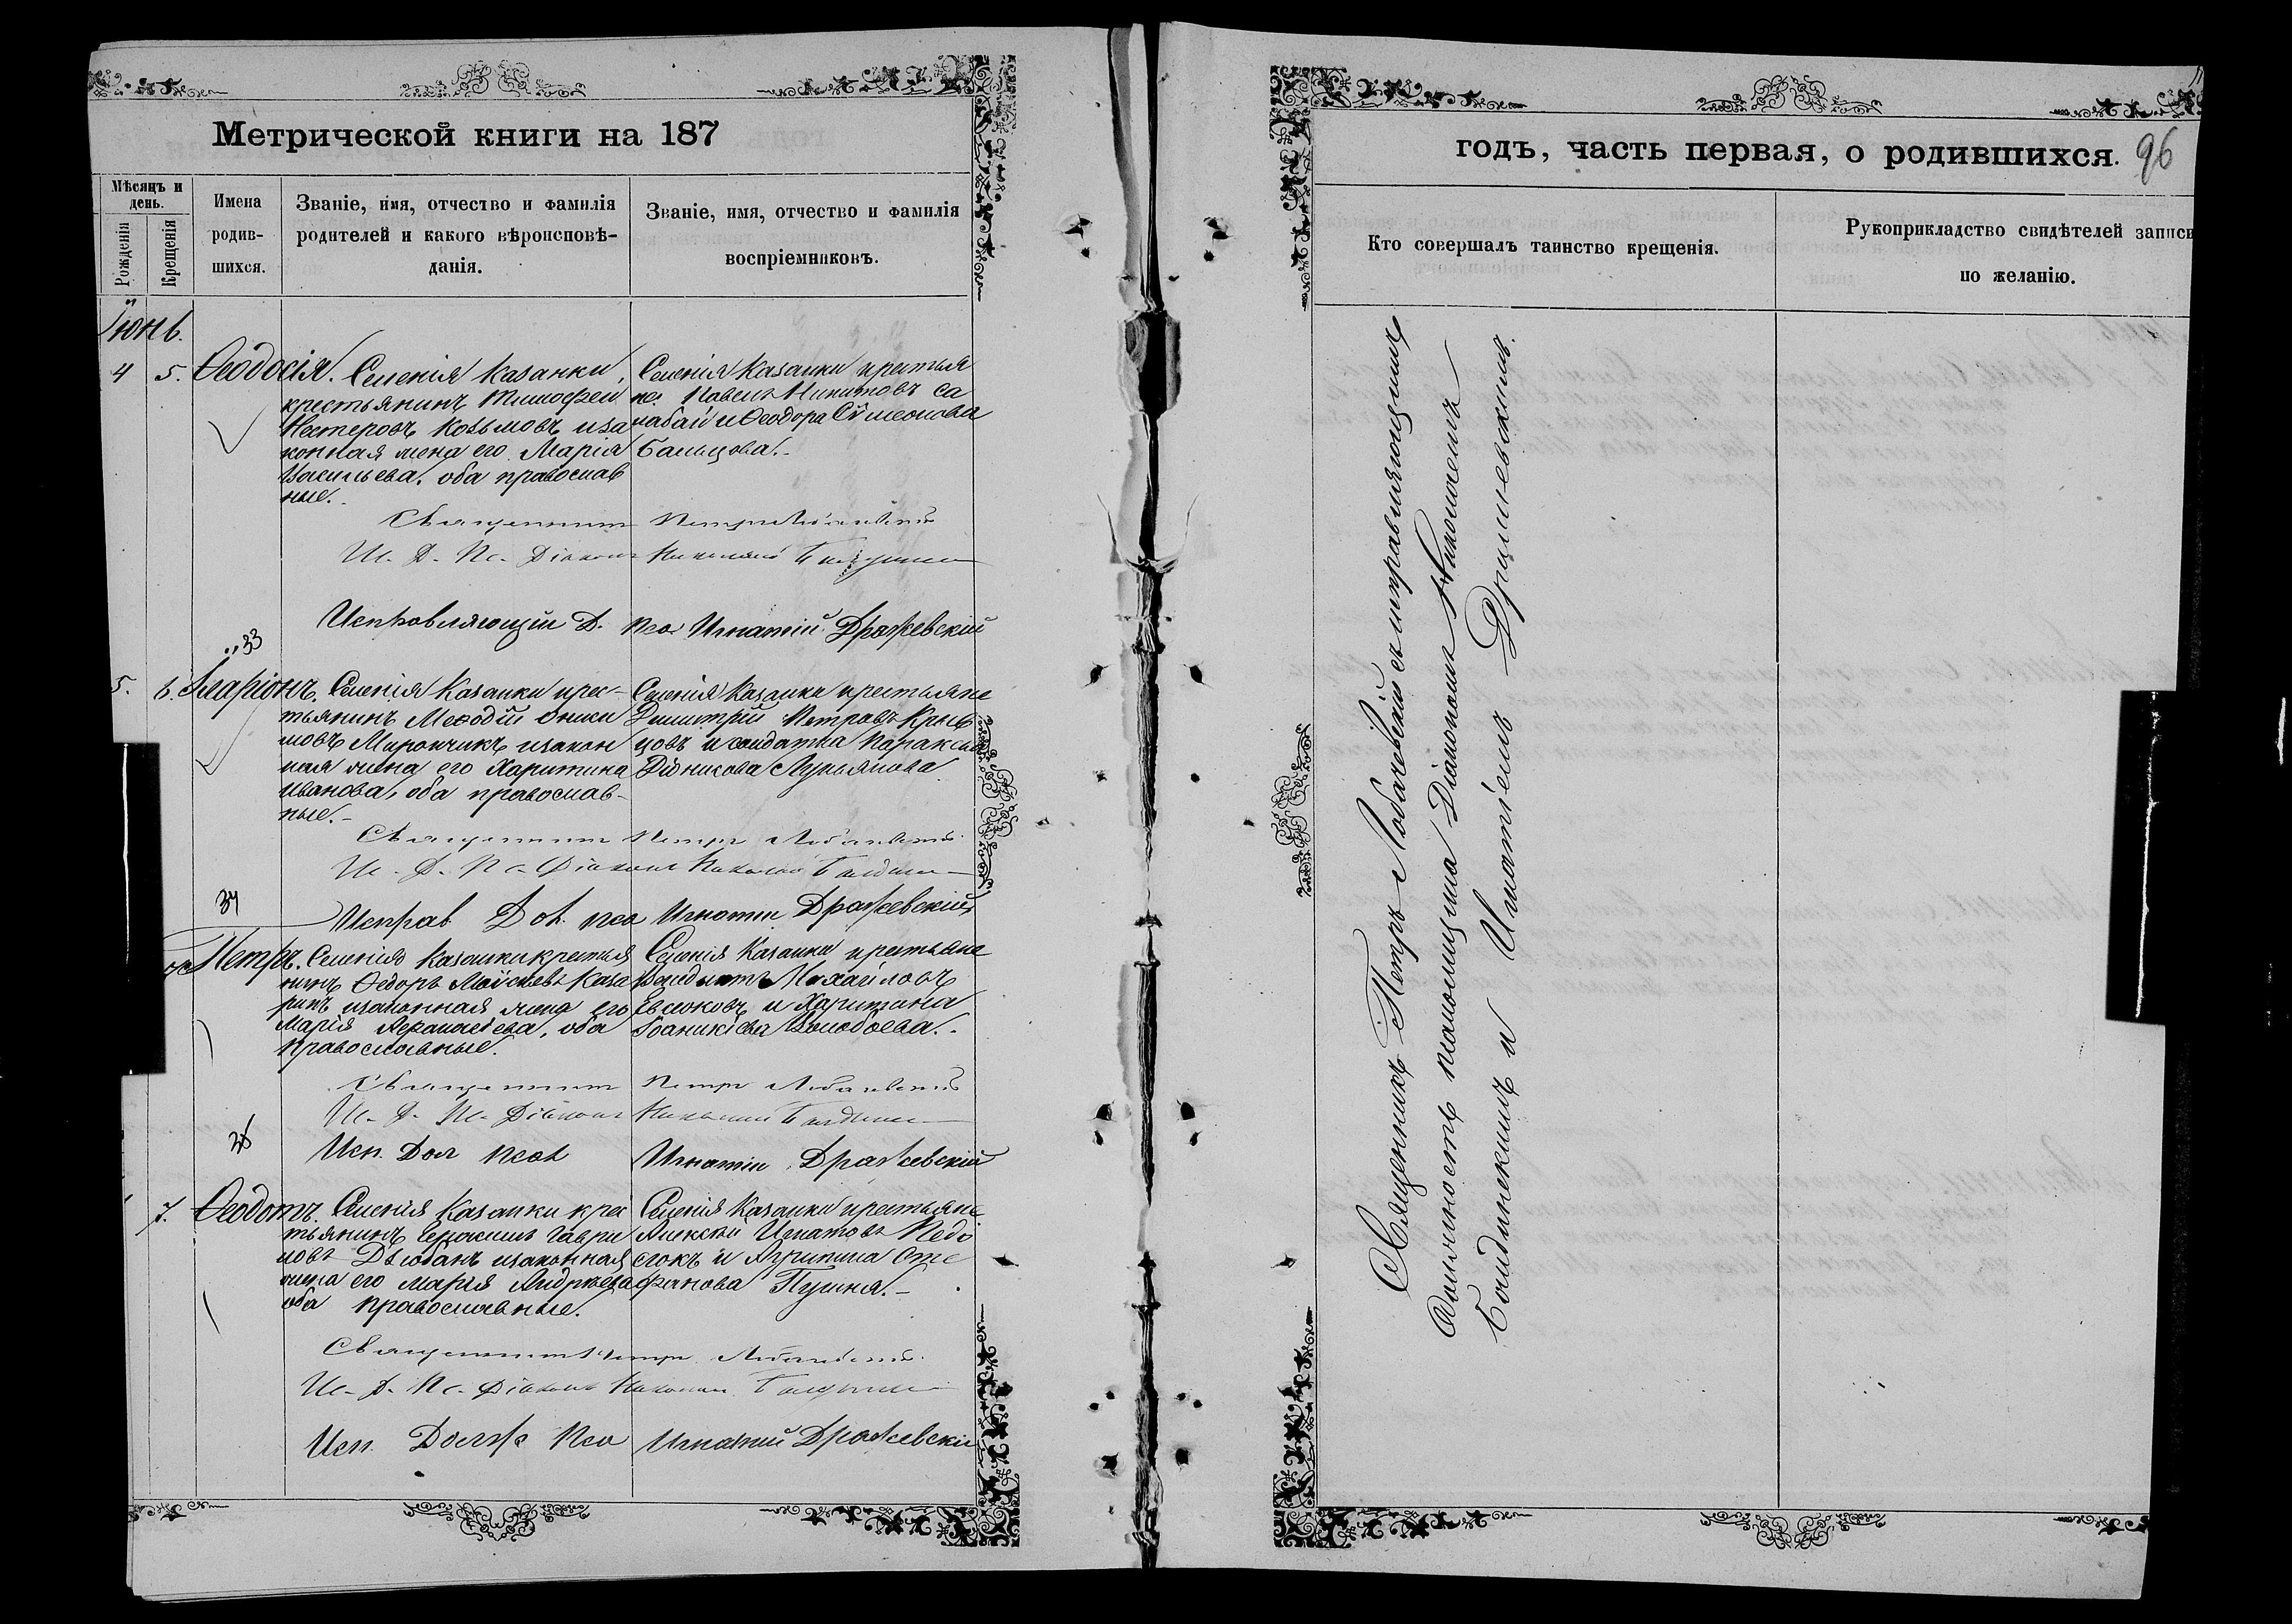 Метрической книги на 187
Мѣсяцъ и день.
Рожденія
Крещенія
Имена родив-
шихся.
Званіе, имя, отчество и фамилія
родителей и какого вѣроисповѣ-
данія.
Званіе, имя, отчество и фамилія
воспріемниковъ.
Іюнь.
4 5. Ѳеодосія.
Селенія Казанки,
крестьянинъ Тимофей
Нестеровъ Козьмовъ иза
конная жена его Марія
Васильева, оба православ
ные.
Селенія Казанки крестья
не: Павелъ Никитовъ Са
набай и Ѳеодора Сѵмеонова
Бальцова.
Священникъ Петръ
И. Д. Пс. Діаконъ Николай
Исправляющій Д. Пса Игнатій Дражевскій
33
5. 6. Иларіонъ.
Селенія Казанки крес-
тьянинъ Меѳодій
мовъ Мирончикъ изакон
ная жена его Харитина
Иванова, оба православ-
ные.
Селенія Казанки крестьяне
Димитрій Петровъ Крыв
цовъ и солдатка Параксева
Лукьянова
Священникъ Петръ
И. Д. Пс. Діаконъ Николай
34
Исправ Дол. пса Игнатій Дражевскій
Петръ.
Селенія Казанки крестья
нинъ Ѳедоръ Моѵсіевъ Каза
ринъ изаконная жена его
Марія Аѳанасіева, оба
православные.
Селенія Казанки крестьяне
Михайловъ
Евсюковъ и Харитина
Іоаникіева
Священникъ Петръ
И. Д. Пс. Діаконъ Николай
35
Исп. Дол псал Игнатій Дражевскій
7. Ѳеодотъ.
Селенія Казанки крес
тьянинъ Герасимъ Гаври
ловъ изаконная
жена его Марія Андреева
оба православные.
Селенія Казанки крестьяне
Алексій Игнатовъ Недо
сѣкъ и Агрипина Сте
фанова Пушня.
Священникъ Петръ
И. Д. Пс. Діаконъ Николай
Исп. Долж Пса Игнатій Дражевскій
годъ, часть первая, о родившихся. 96
Кто совершалъ таинство крещенія.
Рукоприкладство свидѣтелей записи
по желанію.
Священникъ Петръ Лобачевскій съ исправляющимъ
должность псаломщика Діакономъ Николаемъ
Болдинскимъ и Игнатіемъ